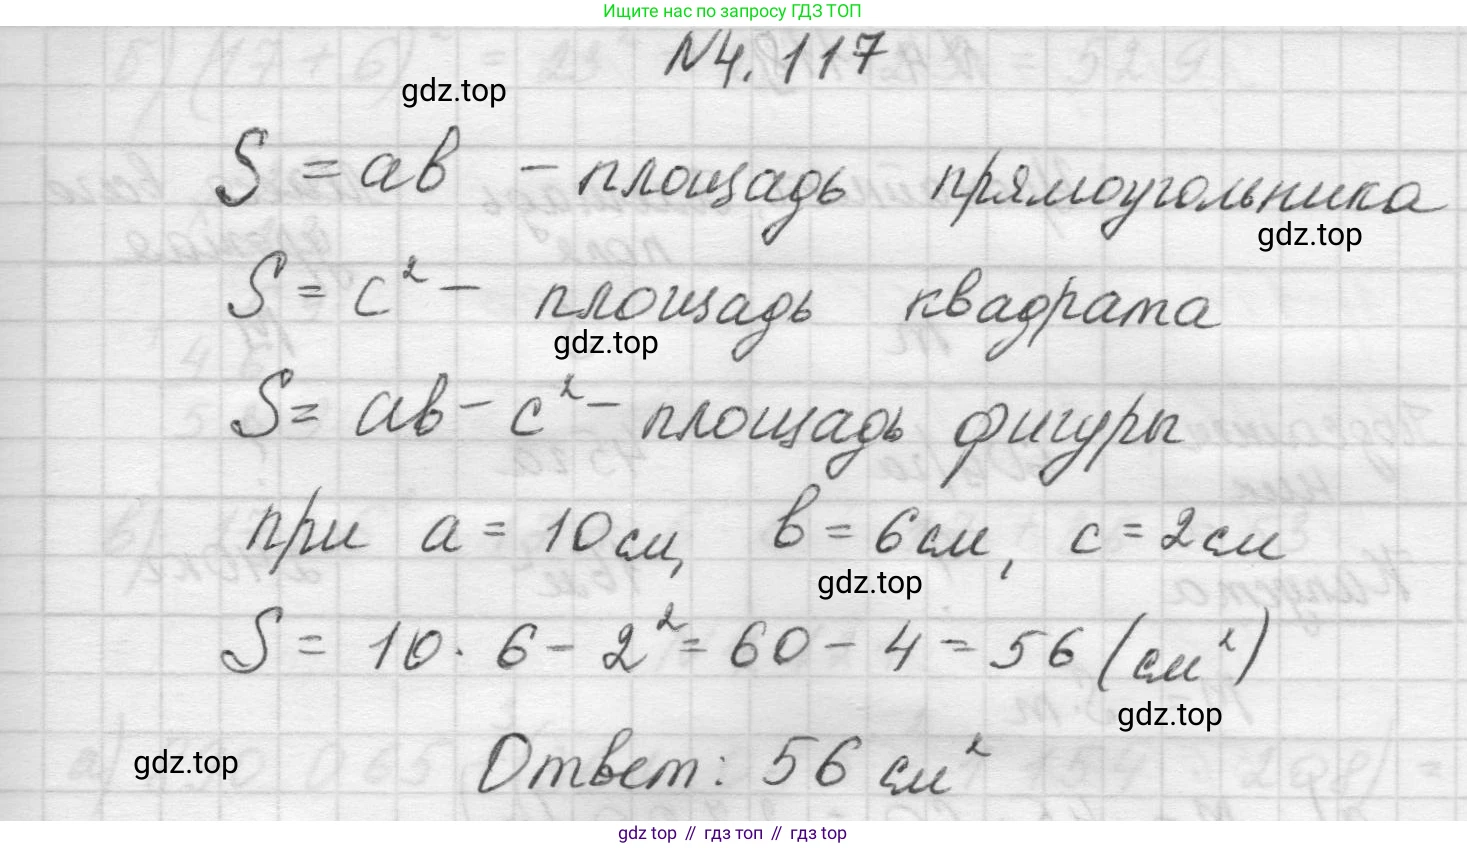 Ищите нас по запросу ГДЗ ТОП
N4.117
gdz.top
S = ab - площадь прямоугольника
gdz.top
S = c² - площадь квадрата
gdz.top
S = ab - c² - площадь фигуры
при a = 10см, b = 6см, c = 2см
gdz.top
S = 10 · 6 - 2² = 60 - 4 = 56 (см²)
gdz.top
gdz.top
Ответ: 56 см²
gdz top // гдз топ // гдз top